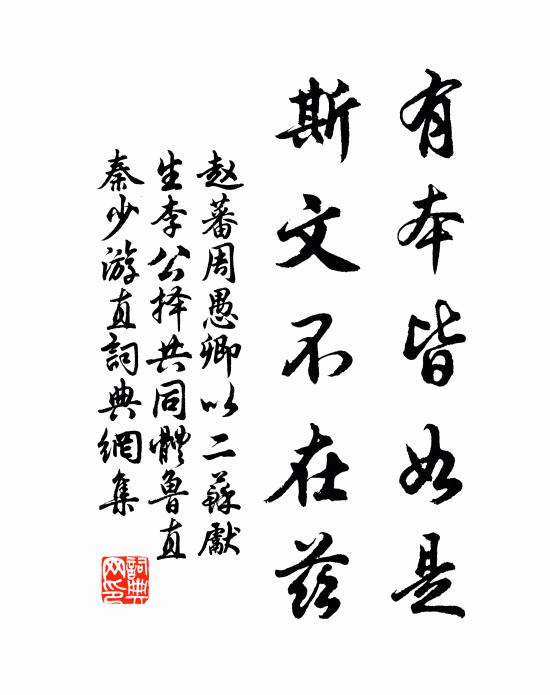 有本皆如是
斯文不在茲
赵蕃周愚卿以二蘇獻
生李公择共同體魯直
秦少游直詞典網集
詞典网印